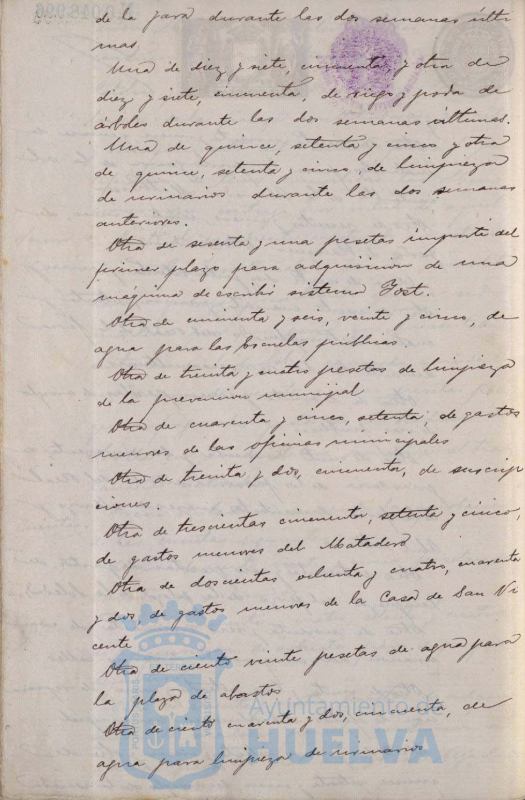 de la para durante las dos semanas últi
mas.
Una de diez y siete, cincuenta, y otra de
diez y siete, cincuenta, de riego y poda de
árboles durante las dos semanas últimas.
Una de quince, setenta y cinco y otra
de quince, setenta y cinco, de limpieza
de urinarios durante las dos semanas
anteriores.
Otra de sesenta y una pesetas importe del
primer plazo para adquisicion de una
máquina de escribir sistema Yost.
Otra de cincuenta y seis, veinte y cinco, de
agua para las Escuelas públicas
Otra de treinta y cuatro pesetas de limpieza
de la prevencion municipal
Otra de cuarenta y cinco, setenta, de gastos
menores de las oficinas municipales
Otra de treinta y dos, cincuenta, de suscrip
ciones.
Otra de trescientas cincuenta, setenta y cinco,
de gastos menores del Matadero
Otra de doscientas ochenta y cuatro, cuarenta
y dos, de gastos menores de la Casa de San Vi
cente
Otra de ciento veinte pesetas de agua para
la plaza de abastos
Otra de ciento cuarenta y dos, cincuenta, de
agua para limpieza de urinarios
Ayuntamiento de
HUELVA